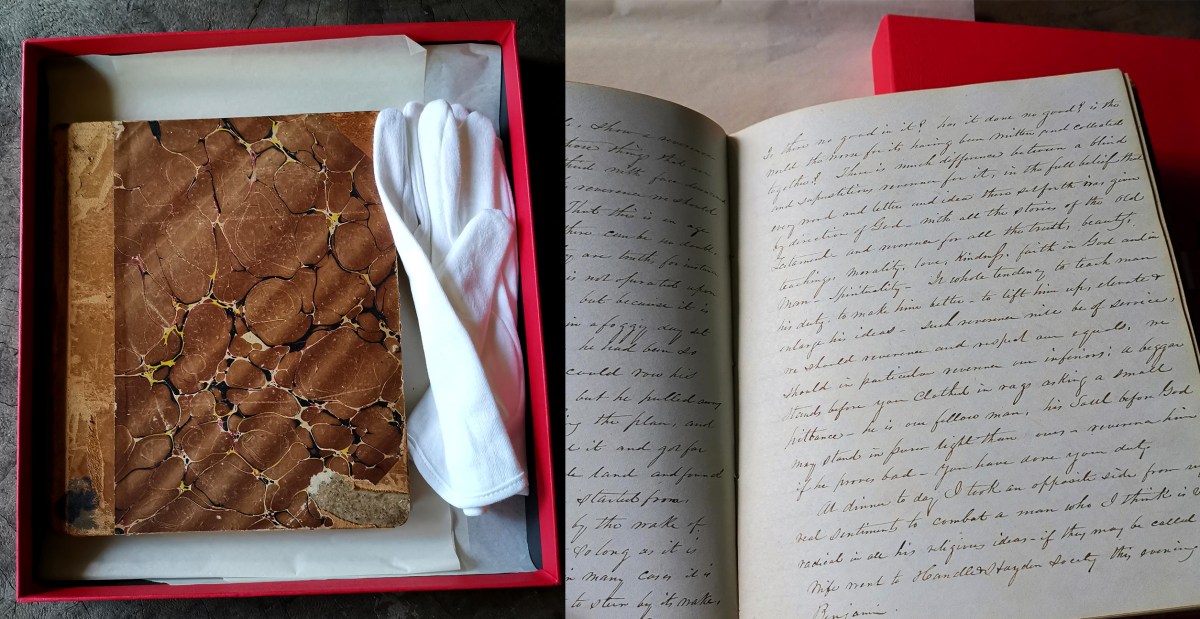 . Show a reverence
those things that
and with face downward
reverence we should
That this is an age
there can be no doubt
y are truth, for instan
is not operated upon
but because it is
in a foggy day set
he had been so
could row his
but he pulled away
g the plan, and
e it and got far
land and found
started from,
by the wake of
So long as it is
n many cases it is
to steer by its wake,
Is there no good in it? has it done no good? is the
world the worse for its having been written and collected
together? There is much difference between a blind
and superstitious reverence for it, in the full belief that
every word and letter and idea therein set forth was given
by direction of God with all the stories of the Old
Testament and reverence for all the truth, beauty,
teachings, morality, love, kindness, faith in God and in
man – Spirituality – Its whole tendency to teach man
his duty, to make him better – to lift him up, elevate &
enlarge his ideas – Such reverence will be of service,
We should reverence and respect our equals, we
should in particular reverence our inferiors; a beggar
stands before you clothed in rags asking a small
pittance – he is our fellow man, his Soul before God
may stand in purer light than ours – reverence him
if he proves bad – you have done your duty
At dinner to day I took an opposite side from
real sentiments to combat a man who I think is
radical in all his religious ideas – if they may be called
Wife went to Handel & Hayden Society this evening
Benjamin.